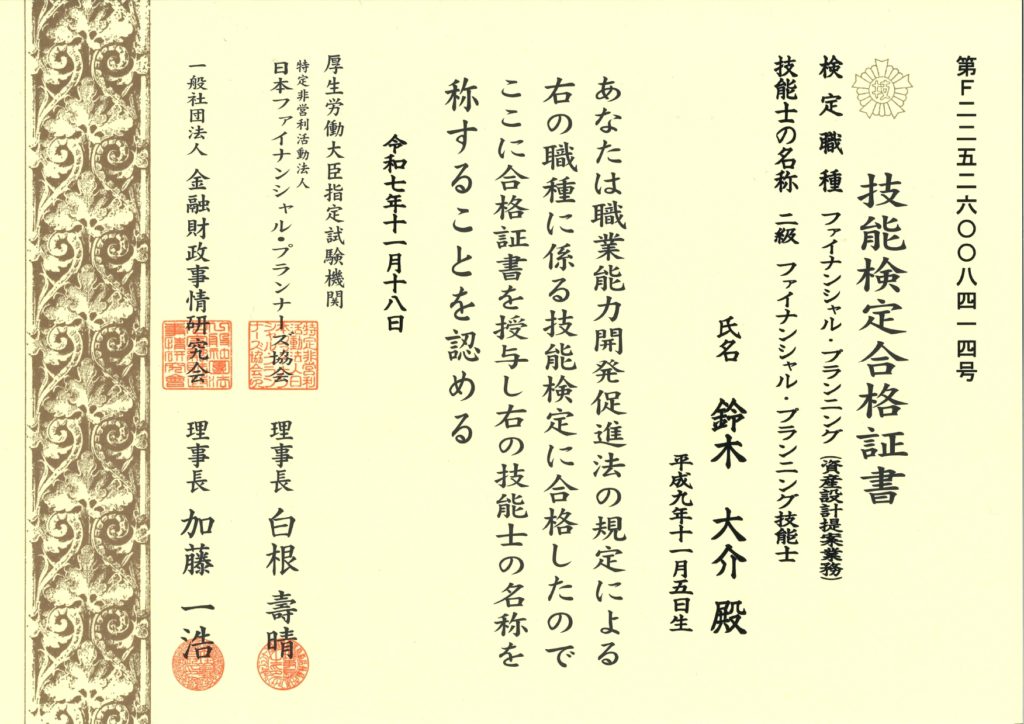 第F二二五二六〇〇八四一四号
技能検定合格証書
検定職種 ファイナンシャル・プランニング(資産設計提案業務)
技能士の名称 二級 ファイナンシャル・プランニング技能士
氏名 鈴木 大介 殿
平成九年十一月五日生
あなたは職業能力開発促進法の規定による
右の職種に係る技能検定に合格したので
ここに合格証書を授与し右の技能士の名称を
称することを認める
令和七年十一月十八日
厚生労働大臣指定試験機関
特定非営利活動法人
日本ファイナンシャル・プランナーズ協会 理事長 白根 壽晴
一般社団法人 金融財政事情研究会 理事長 加藤 一浩